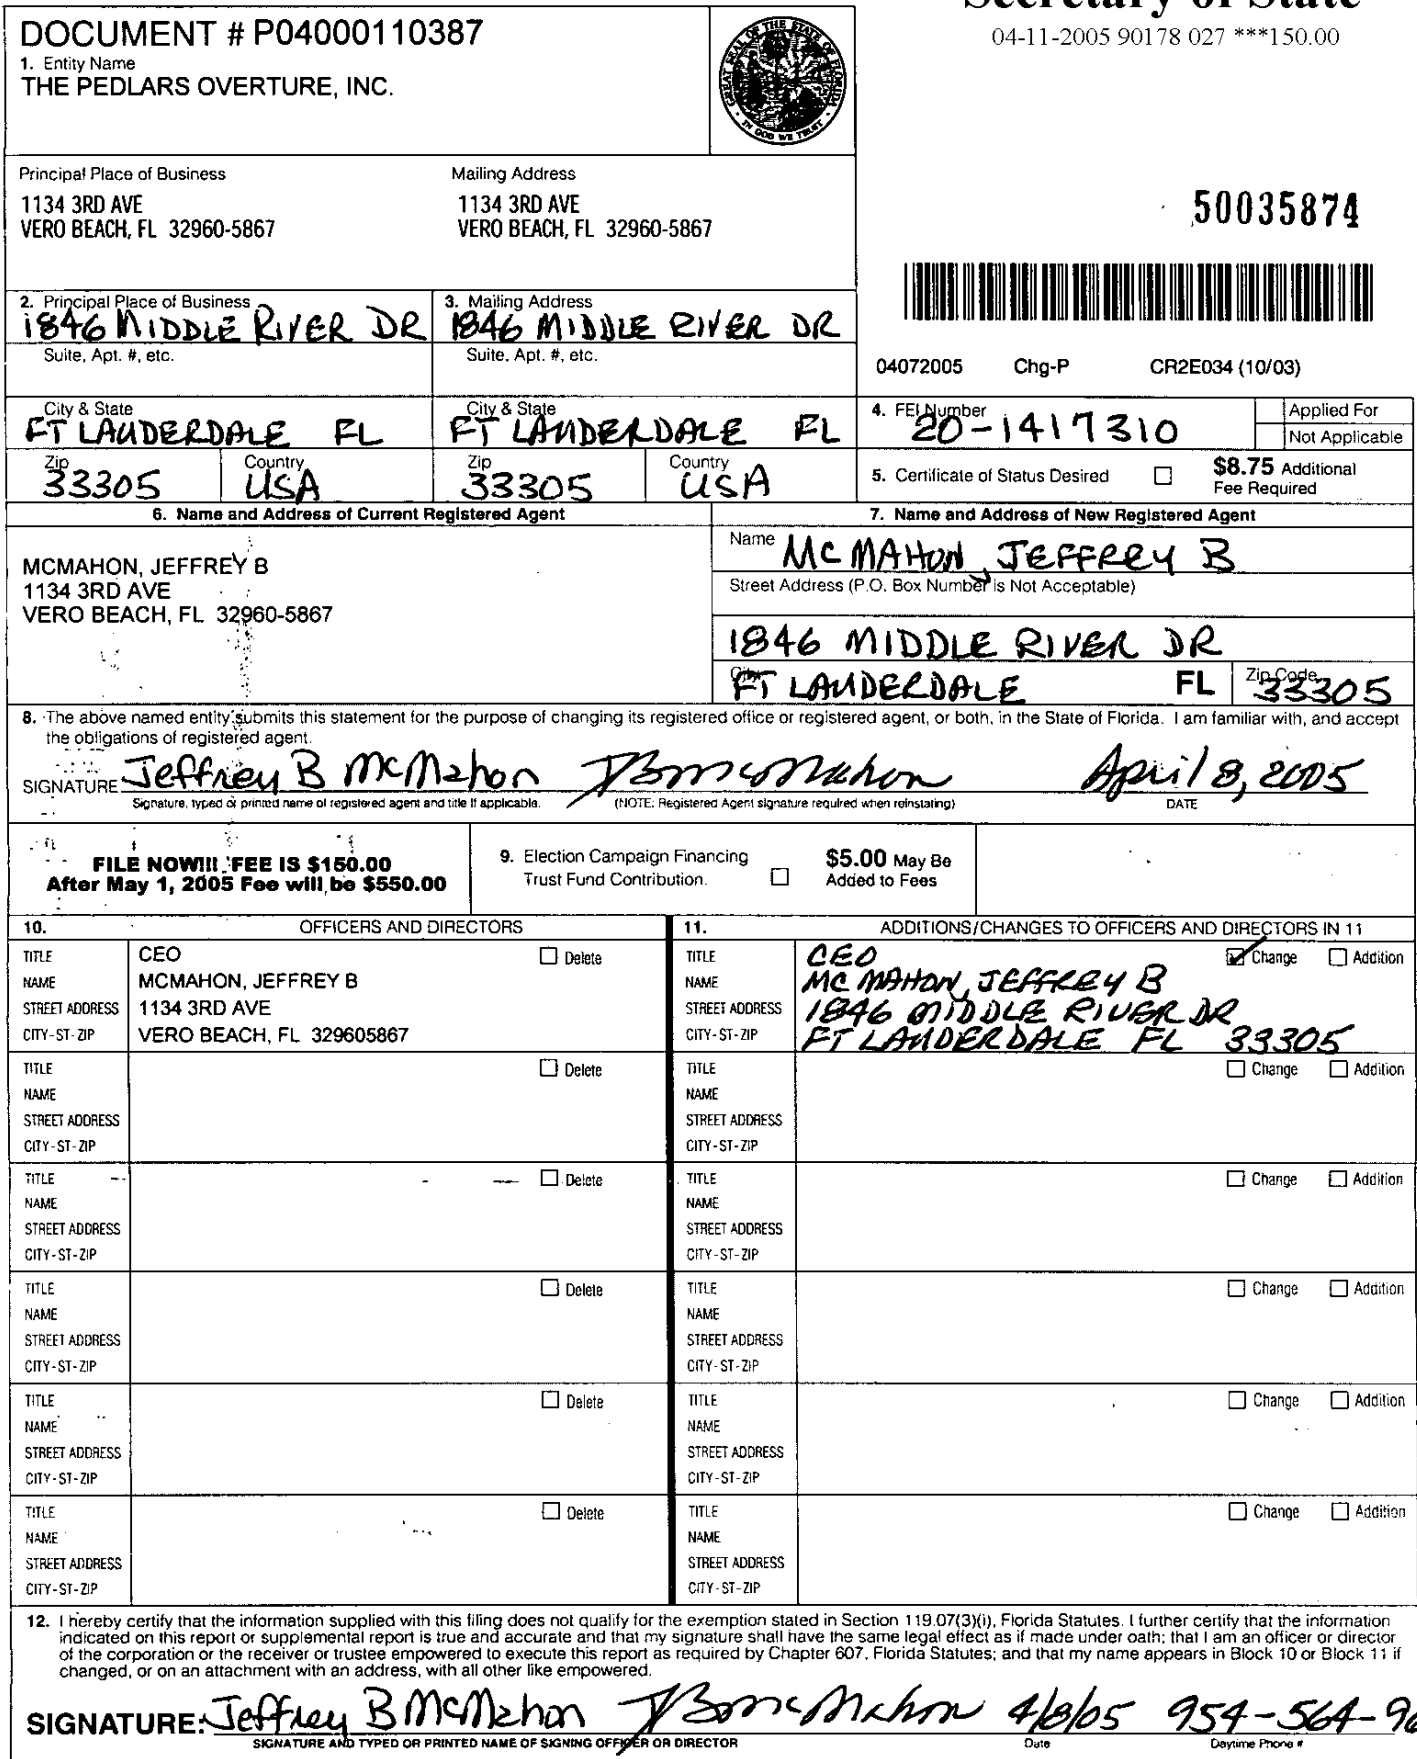 Secretary of State
04-11-2005 90178 027 ***150.00
DOCUMENT # P04000110387
1. Entity Name
THE PEDLARS OVERTURE, INC.
GREAT SEAL OF THE STATE OF FLORIDA
IN GOD WE TRUST
Principal Place of Business
1134 3RD AVE
VERO BEACH, FL 32960-5867
Mailing Address
1134 3RD AVE
VERO BEACH, FL 32960-5867
50035874
04072005 Chg-P CR2E034 (10/03)
2. Principal Place of Business
1846 MIDDLE RIVER DR
Suite, Apt. #, etc.
City & State
FT LAUDERDALE FL
Zip
33305
Country
USA
3. Mailing Address
1846 MIDDLE RIVER DR
Suite, Apt. #, etc.
City & State
FT LAUDERDALE FL
Zip
33305
Country
USA
4. FEI Number
20-1417310
Applied For
Not Applicable
5. Certificate of Status Desired
$8.75 Additional
Fee Required
6. Name and Address of Current Registered Agent
MCMAHON, JEFFREY B
1134 3RD AVE
VERO BEACH, FL 32960-5867
7. Name and Address of New Registered Agent
Name
MCMAHON, JEFFREY B
Street Address (P.O. Box Number is Not Acceptable)
1846 MIDDLE RIVER DR
City
FT LAUDERDALE
FL
Zip Code
33305
8. The above named entity submits this statement for the purpose of changing its registered office or registered agent, or both, in the State of Florida. I am familiar with, and accept
the obligations of registered agent.
SIGNATURE Jeffrey B McMahon JBMcMahon April 8, 2005
Signature, typed or printed name of registered agent and title if applicable.
(NOTE: Registered Agent signature required when reinstating)
DATE
FILE NOW!!! FEE IS $150.00
After May 1, 2005 Fee will be $550.00
9. Election Campaign Financing
Trust Fund Contribution.
$5.00 May Be
Added to Fees
10. OFFICERS AND DIRECTORS
TITLE CEO Delete
NAME MCMAHON, JEFFREY B
STREET ADDRESS 1134 3RD AVE
CITY-ST-ZIP VERO BEACH, FL 329605867
TITLE Delete
NAME
STREET ADDRESS
CITY-ST-ZIP
TITLE Delete
NAME
STREET ADDRESS
CITY-ST-ZIP
TITLE Delete
NAME
STREET ADDRESS
CITY-ST-ZIP
TITLE Delete
NAME
STREET ADDRESS
CITY-ST-ZIP
TITLE Delete
NAME
STREET ADDRESS
CITY-ST-ZIP
11. ADDITIONS/CHANGES TO OFFICERS AND DIRECTORS IN 11
TITLE CEO Change Addition
NAME MCMAHON, JEFFREY B
STREET ADDRESS 1846 MIDDLE RIVER DR
CITY-ST-ZIP FT LAUDERDALE FL 33305
TITLE Change Addition
NAME
STREET ADDRESS
CITY-ST-ZIP
TITLE Change Addition
NAME
STREET ADDRESS
CITY-ST-ZIP
TITLE Change Addition
NAME
STREET ADDRESS
CITY-ST-ZIP
TITLE Change Addition
NAME
STREET ADDRESS
CITY-ST-ZIP
TITLE Change Addition
NAME
STREET ADDRESS
CITY-ST-ZIP
12. I hereby certify that the information supplied with this filing does not qualify for the exemption stated in Section 119.07(3)(i), Florida Statutes. I further certify that the information
indicated on this report or supplemental report is true and accurate and that my signature shall have the same legal effect as if made under oath; that I am an officer or director
of the corporation or the receiver or trustee empowered to execute this report as required by Chapter 607, Florida Statutes; and that my name appears in Block 10 or Block 11 if
changed, or on an attachment with an address, with all other like empowered.
SIGNATURE: Jeffrey B McMahon JBMcMahon 4/8/05 954-564-96
SIGNATURE AND TYPED OR PRINTED NAME OF SIGNING OFFICER OR DIRECTOR
Date
Daytime Phone #